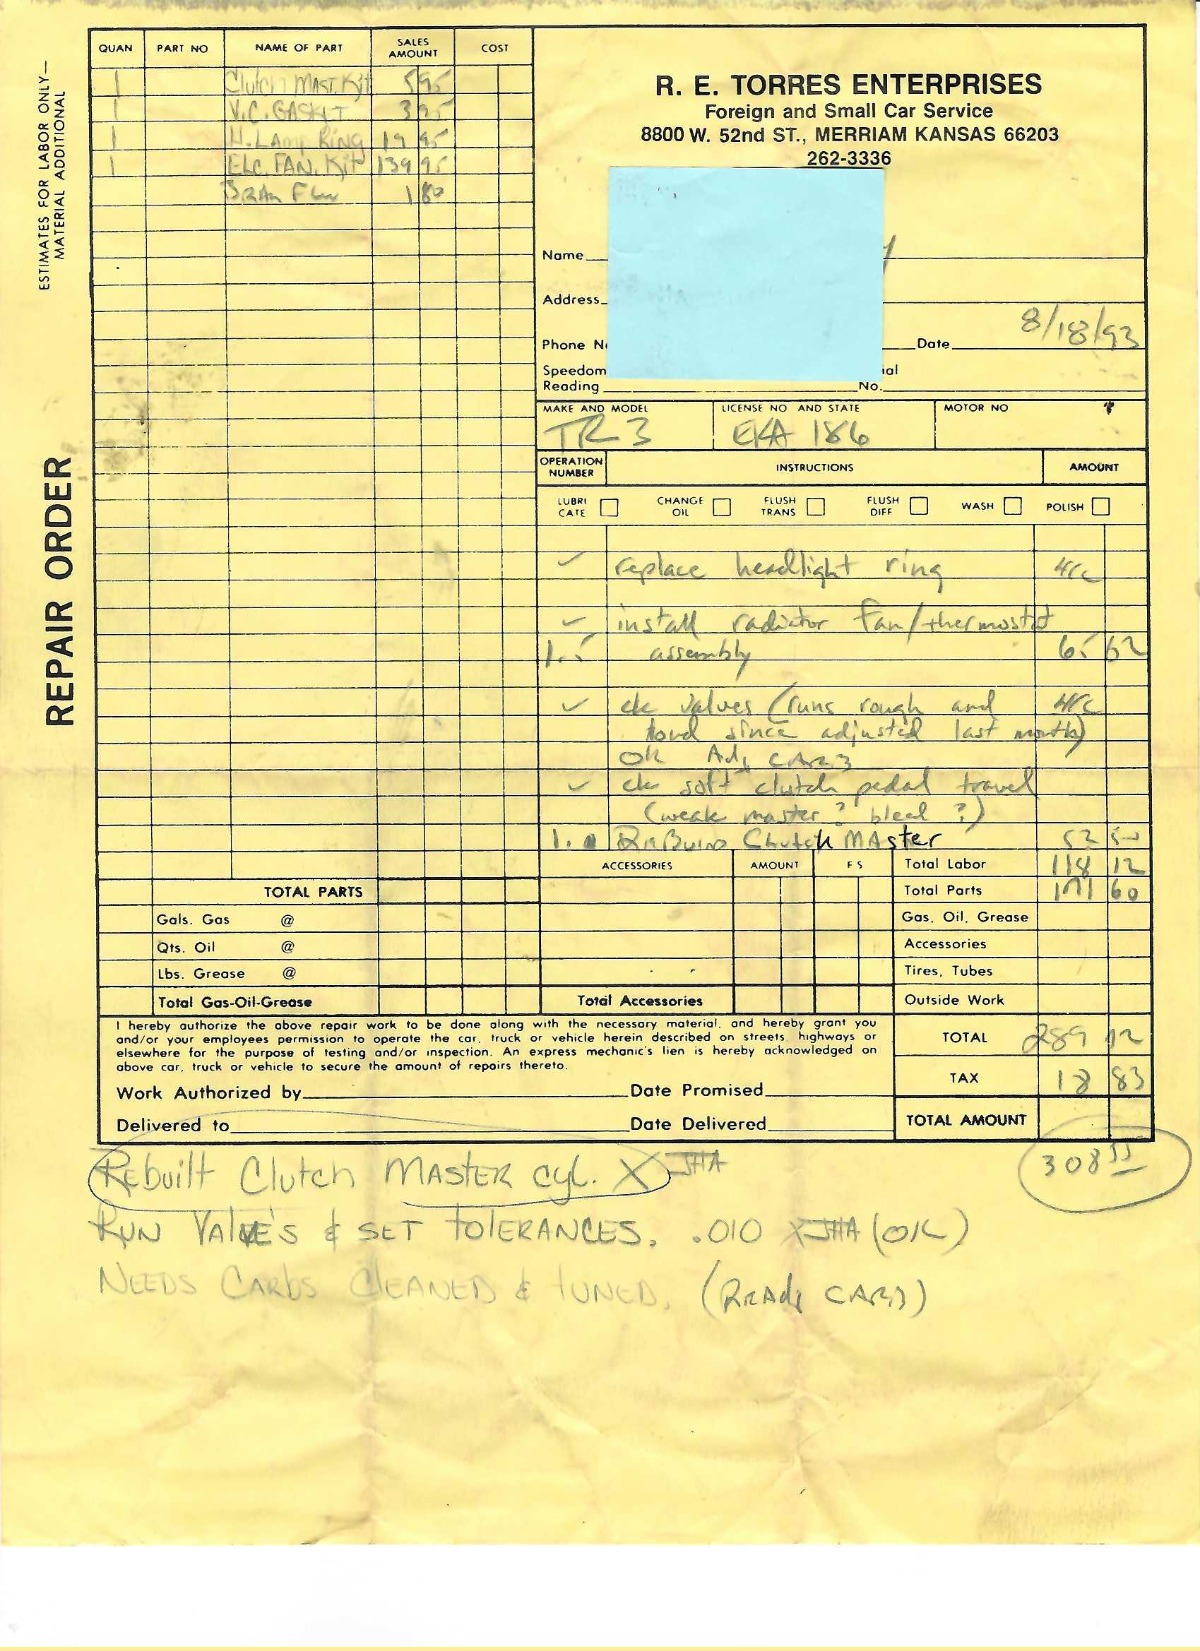 ESTIMATES FOR LABOR ONLY—
MATERIAL ADDITIONAL
REPAIR ORDER
QUAN PART NO NAME OF PART SALES AMOUNT COST
1 Clutch MAST. Kit 5 95
1 V.C. GASKET 3 95
1 H. LAMP RING 19 95
1 ELC. FAN. Kit 139 95
1 80
R. E. TORRES ENTERPRISES
Foreign and Small Car Service
8800 W. 52nd ST., MERRIAM KANSAS 66203
262-3336
Name
Address
Phone
Date 8/18/93
Reading No.
MAKE AND MODEL LICENSE NO AND STATE MOTOR NO
TR3 EKA 186
OPERATION NUMBER INSTRUCTIONS AMOUNT
LUBRI CATE CHANGE OIL FLUSH TRANS FLUSH DIFF WASH POLISH
replace headlight ring
install radiator fan/thermostat
1.5 assembly 65 62
ck valves (runs rough and
since adjusted last month)
OK Adj CARB
ck soft clutch pedal travel
(weak master? bleed?)
1. Clutch MAster 52 50
ACCESSORIES AMOUNT F S Total Labor 118 12
TOTAL PARTS Total Parts 171 60
Gals. Gas @ Gas, Oil, Grease
Qts. Oil @ Accessories
Lbs. Grease @ Tires, Tubes
Total Gas-Oil-Grease Total Accessories Outside Work
I hereby authorize the above repair work to be done along with the necessary material, and hereby grant you
and/or your employees permission to operate the car, truck or vehicle herein described on streets, highways or
elsewhere for the purpose of testing and/or inspection. An express mechanic's lien is hereby acknowledged on
above car, truck or vehicle to secure the amount of repairs thereto.
TOTAL 289 12
TAX 18 83
Work Authorized by Date Promised
Delivered to Date Delivered TOTAL AMOUNT
Rebuilt Clutch MASTER cyl. X JHA 308 55
RUN VALVE'S & SET TOLERANCES. .010 X JHA (OK)
NEEDS CARBS CLEANED & TUNED.